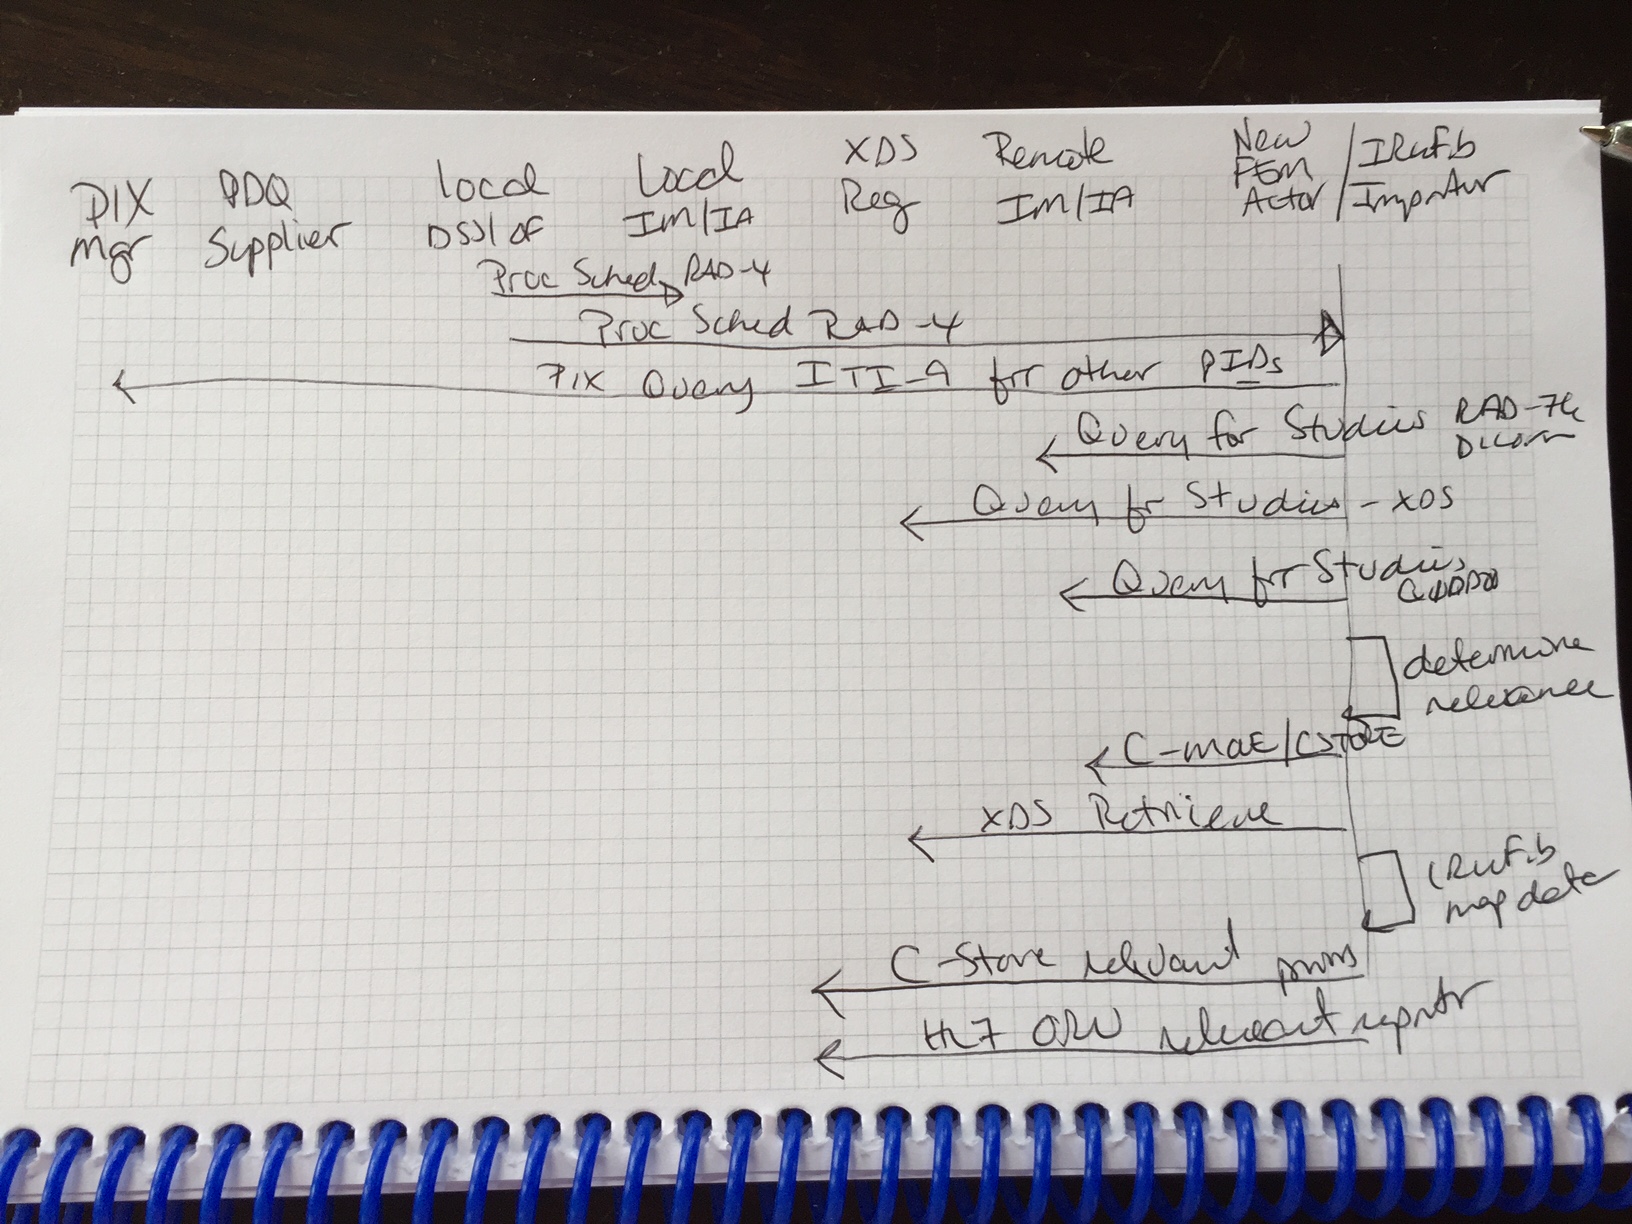 PIX
Mgr
PDQ
Supplier
Local
DSS/OF
Local
IM/IA
XDS
Reg
Remote
IM/IA
New
FEM
Actor
/ IRWF.b
Importer
Proc Sched RAD-4
Proc Sched RAD-4
PIX Query ITI-9 for other PIDs
Query for Studies RAD-
DICOM
Query for Studies - XDS
Query for Studies
determine
relevance
C-MOVE/CSTORE
XDS Retrieve
IRWF.b
map data
C-Store relevant priors
HL7 ORU relevant reports